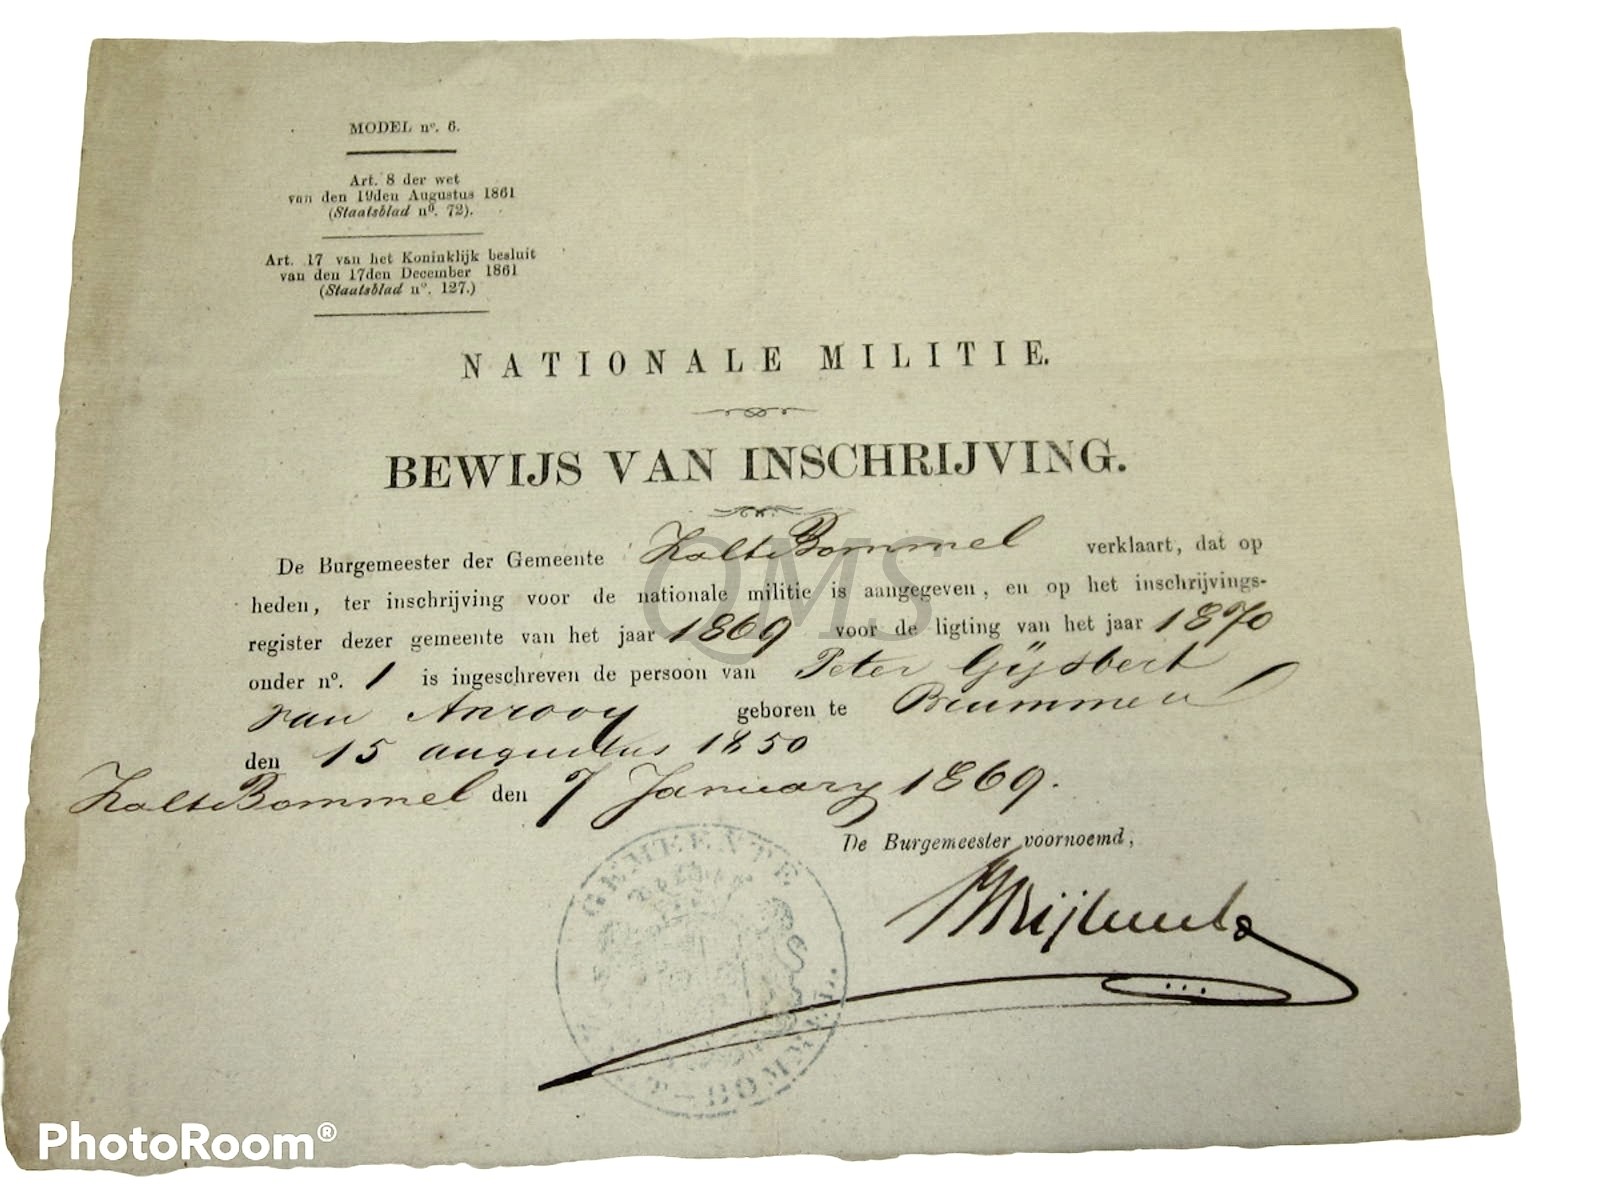 MODEL nº. 6.
Art. 8 der wet
van den 19den Augustus 1861
(Staatsblad nº. 72).
Art. 17 van het Koninklijk besluit
van den 17den December 1861
(Staatsblad nº. 127.)
NATIONALE MILITIE.
BEWIJS VAN INSCHRIJVING.
De Burgemeester der Gemeente ZaltBommel verklaart, dat op
heden, ter inschrijving voor de nationale militie is aangegeven, en op het inschrijvings-
register dezer gemeente van het jaar 1869 voor de ligting van het jaar 1870
onder nº. 1 is ingeschreven de persoon van Peter Gijsbert
van Anrooy geboren te Brummen
den 15 augustus 1850
ZaltBommel den 7 January 1869.
De Burgemeester voornoemd,
GEMEENTE
T-BOMMEL
QMS
PhotoRoom®